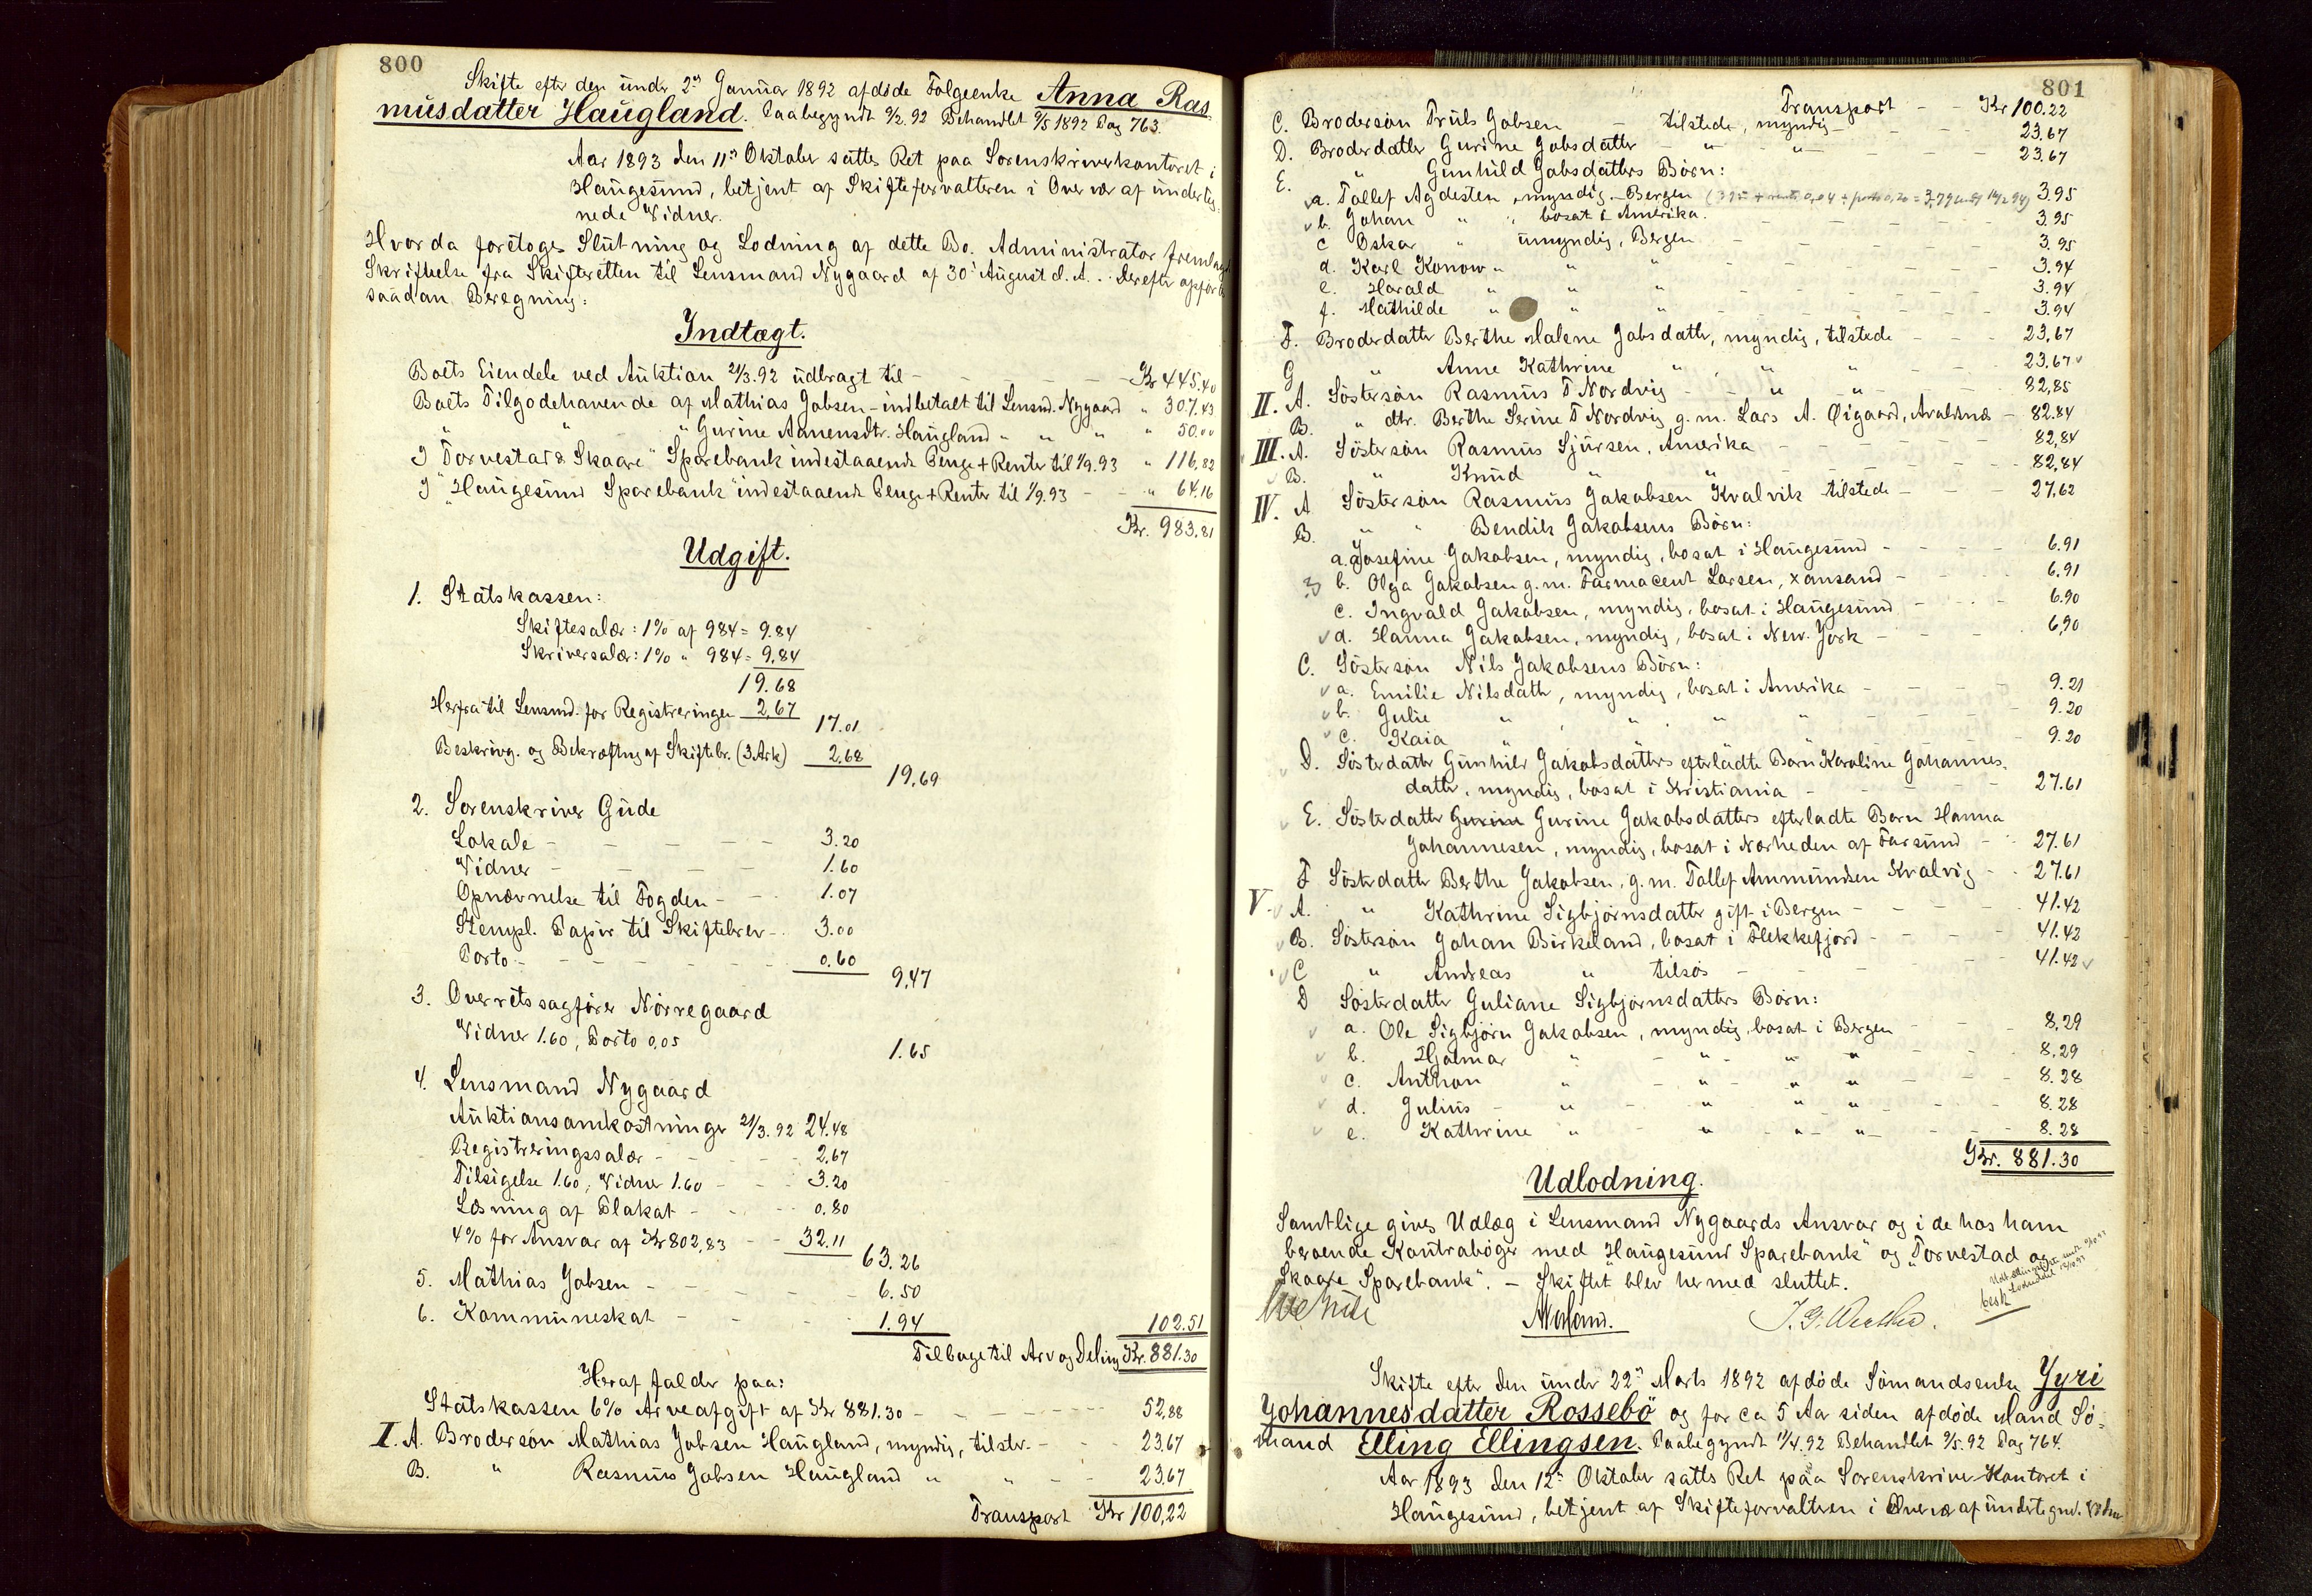 800
Skifte efter den under 2den Januar 1892 afdøde Følgeenke Anna Ras-
musdatter Haugland. Paabegyndt 9/2.92 Behandlet 9/5 1892 Pag 763.
Aar 1893 den 11te Oktober sattes Ret paa Sorenskriverkontoret i
Haugesund, betjent af Skifteforvalteren i Overvær af underteg-
nede Vidner.
Hvorda foretoges Slutning og Lodning af dette Bo. Administrator fremlagt
Skrivelse fra Skifteretten til Lensmand Nygaard af 30' August d. A. . Derefter opført
saadan Beregning:
Indtægt.
Boets Eiendele ved Auktion 21/3.92 udbragt til - - - Kr 445.40
Boets Tilgodehavende af Mathias Jobsen - indbetalt til Lensmd. Nygaard " 307.43
" " " Gurine Aanensdtr. Haugland " " " " 50.00
I "Torvestad & Skaare" Sparebank indestaaende Penge + Renter til 1/9.93 " 116,82
I "Haugesund Sparebank" indestaaende Penge + Renter til 1/9.93 - - " 64,16
Kr. 983,81
Udgift.
1. Statskassen:
Skiftesalær: 1% af 984 = 9.84
Skriversalær: 1% " 984 = 9,84
19.68
Herfra til Lensmd. for Registreringen 2,67 17.01
Beskrivg. og Bekræftng af Skiftebr. (3 Ark) 2,68
19,69
2. Sorenskriver Gude
Lokale - - - 3.20
Vidner - - - 1.60
Opnævnelse til Fogden - - 1.07
Stempl. Papir til Skiftebrev - . 3.00
Porto - - - 0.60
9,47
3. Overretssagfører Nørregaard
Vidner 1.60, Porto 0,05
1.65
4. Lensmand Nygaard
Auktionsomkostninger 21/3.92 24.48
Registreringssalær - - 2,67
Tilsigelse 1.60, Vidner 1.60 - - 3.20
Læsning af Plakat - - 0.80
4% for Ansvar af Kr 802,83 - - 32.11
63.26
5. Mathias Jobsen - - 6.50
6. Kommuneskat - - 1.94 102.51
Tilbage til Arv og Deling Kr. 881.30
Heraf falder paa:
Statskassen 6% Arveafgift af Kr 881.30 - - - 52,88
I. A. Brodersøn Mathias Jobsen Haugland, myndig, tilstede. - - 23,67
B. " Rasmus Jobsen Haugland " " - - 23,67
Transport Kr 100,22
801
Transport - - Kr 100.22
C. Brodersøn Truls Jobsen - tilstede, myndig - - 23,67
D. Broderdatter Gurine Jobsdatter - " " - - 23.67
E. " Gunhild Jobsdatters Børn:
a. Tollef Agdesten, myndig - Bergen 3.95
b. Johan " " bosat i Amerika. - - 3.95
c Oskar " umyndig, Bergen - - 3.95
d. Karl Konow " " " - - 3.94
e. Harald " " " - - 3.94
f. Mathilde " " " - - 3.94
F. Broderdatter Berthe Malene Jobsdatter, myndig, tilstede - - 23,67
G " Anne Kathrine " " " 23.67
II. A. Søstersøn Rasmus T Nordvig - " " - 82,85
B. " dtr. Berthe Serine T Nordvig g. m. Lars A. Øigaard, Avaldsnæs - 82.84
III. A. Søstersøn Rasmus Sjursen, Amerika - - 82,84
B. " Knud " " - - 82,84
IV. A Søstersøn Rasmus Jakobsen Kvalvik tilstede - - 27,62
B. " " Bendik Jakobsens Børn:
a. Josefine Jakobsen, myndig, bosat i Haugesund - - 6.91
b. Olga Jakobsen g. m. Farmaceut Larsen, Xansand - - 6.91
c. Ingvald Jakobsen, myndig, bosat i Haugesund - - 6.90
d. Hanna Jakobsen, myndig, bosat i New. York - - 6,90
C. Søstersøn Nils Jakobsens Børn:
a. Emilie Nilsdatter, myndig, bosat i Amerika - - 9.21
b. Julie " " " " - - 9.20
c. Kaia " " " " - - 9.20
D. Søsterdatter Gunhild Jakobsdatters efterladte Barn Karoline Johannes-
datter, myndig, bosat i Kristiania - - 27.61
E. Søsterdatter Gurine Gurine Jakobsdatters efterladte Barn Hanna
Johannesen, myndig, bosat i Nærheden af Farsund - - 27.61
F Søsterdatter Berthe Jakobsen, g. m. Tollef Ammundsen Kvalvig - - 27.61
V. A. " Kathrine Sigbjørnsdatter gift i Bergen - - 41.42
B. Søstersøn Johan Birkeland, bosat i Flekkefjord - - 41.42
C " Andreas " tilsøs - - 41.42
D Søsterdatter Juliane Sigbjørnsdatters Børn:
a. Ole Sigbjørn Jakobsen, myndig, bosat i Bergen - - 8,29
b. Hjalmar " - " " " - - 8,29
c. Anthon " - " " " - - 8.28
d. Julius - " - " " " - - 8.28
e. Kathrine " - " " " - - 8.28
Kr. 881.30
Udlodning.
Samtlige gives Udlæg i Lensmand Nygaards Ansvar og i de hos ham
beroende Kontrabøger med "Haugesund Sparebank" og "Torvestad og
Skaare Sparebank". - Skiftet blev hermed sluttet.
besk
Skifte efter den under 22de Marts 1892 afdøde Sømandsenke Jyri
Johannesdatter Rossebø og for ca 5 Aar siden afdøde Mand Sø-
mand Elling Ellingsen. Paabegyndt 11/4.92 Behandlet 9/5.92 Pag 764.
Aar 1893 den 12te Oktober sattes Ret paa Sorenskriver-Kontoret i
Haugesund, betjent af Skifteforvalteren i Overvær af undertegnd. Vidner